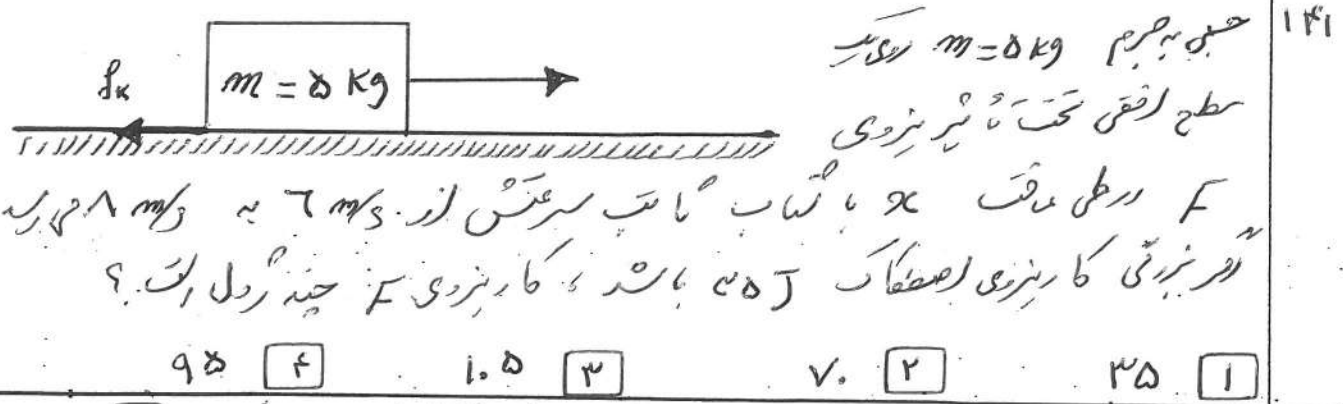 ۱۴۱
جسمی به جرم m = ۵ kg روی یک
سطح افقی تحت تأثیر نیروی
fₖ m = ۵ kg
F در طی مسافت x با شتاب ثابت سرعتش از ۶ m/s به ۸ m/s می رسد
اگر بزرگی کار نیروی اصطکاک ۳۵ J باشد، کار نیروی F چند ژول است؟
۱ ۳۵ ۲ ۷۰ ۳ ۱۰۵ ۴ ۹۵